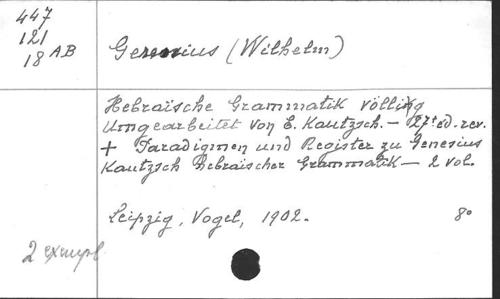 447
121
18 A.B
Gesenius (Wilhelm)
Hebraïsche Grammatik völlig
Umgearbeitet von E. Kautzsch. — 27te ed. rev.
+ Paradigmen und Register zu Genesius
Kautzsch Hebraïscher Grammatik — 2 vol.
Leipzig, Vogel, 1902. 8º
2 exempl.